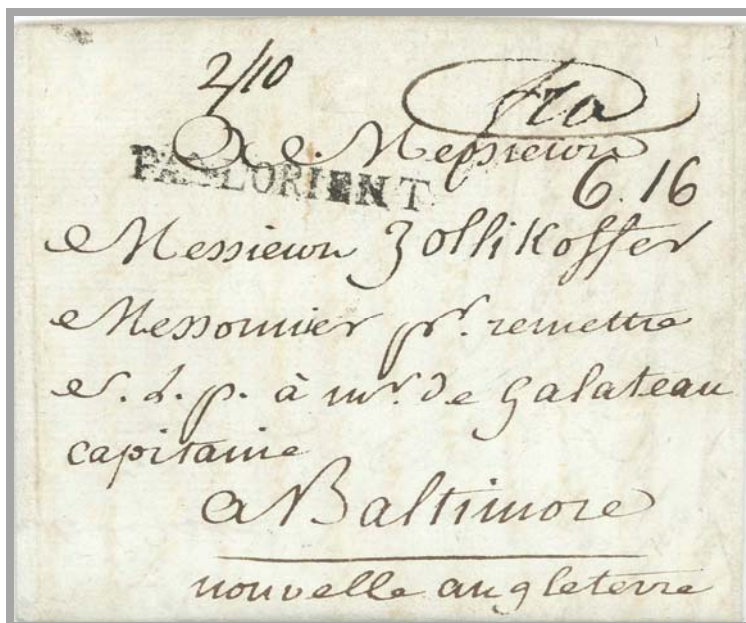 2/10
fra
A Messieurs
PAR L'ORIENT
6.16
Messieurs Zollikoffer
Messonnier pr. remettre
S. L. p. à mr. de Galateau
capitaine
a Baltimore
nouvelle angleterre